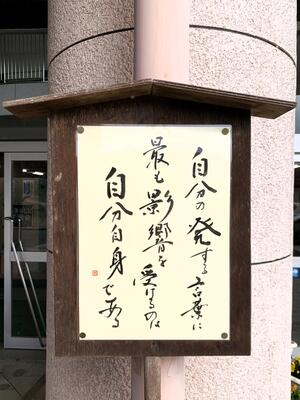 自分の発する言葉に
最も影響を受けるのは
自分自身である